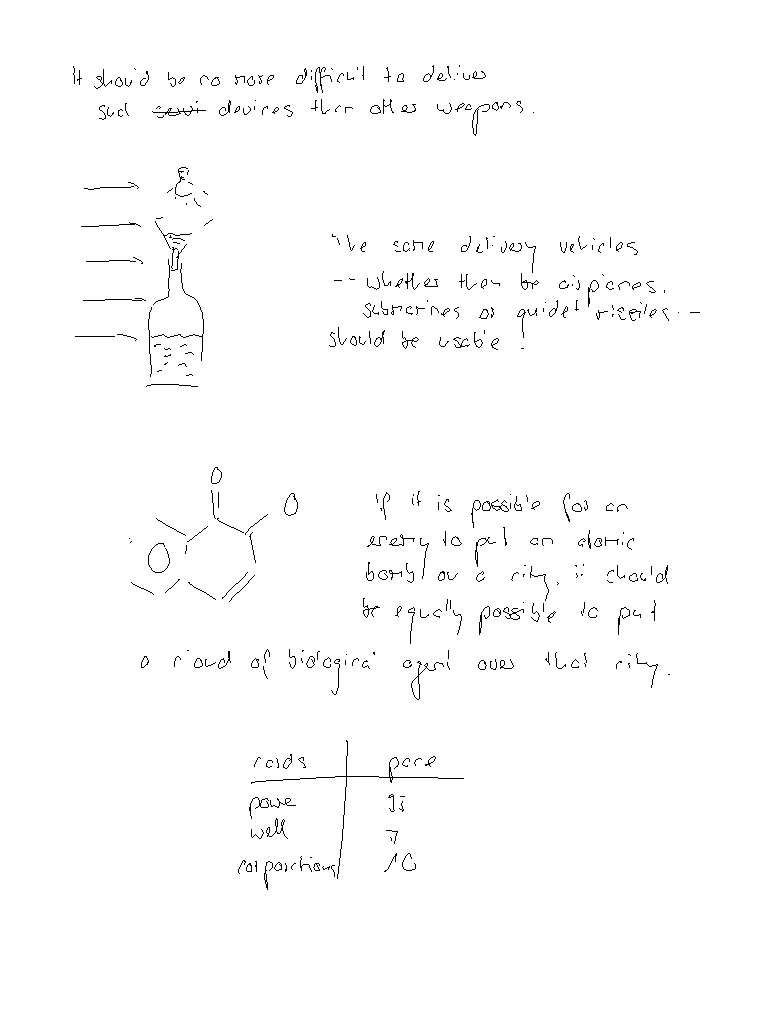 It should be no more difficult to deliver
such devices than other weapons.
The same delivery vehicles
-- whether they be airplanes,
submarines or guided missiles --
should be usable.
O
O
If it is possible for an
O
enemy to put an atomic
bomb on a city, it should
be equally possible to put
a cloud of biological agent over that city.
raids pace
powe 95
well 7
corporations 10